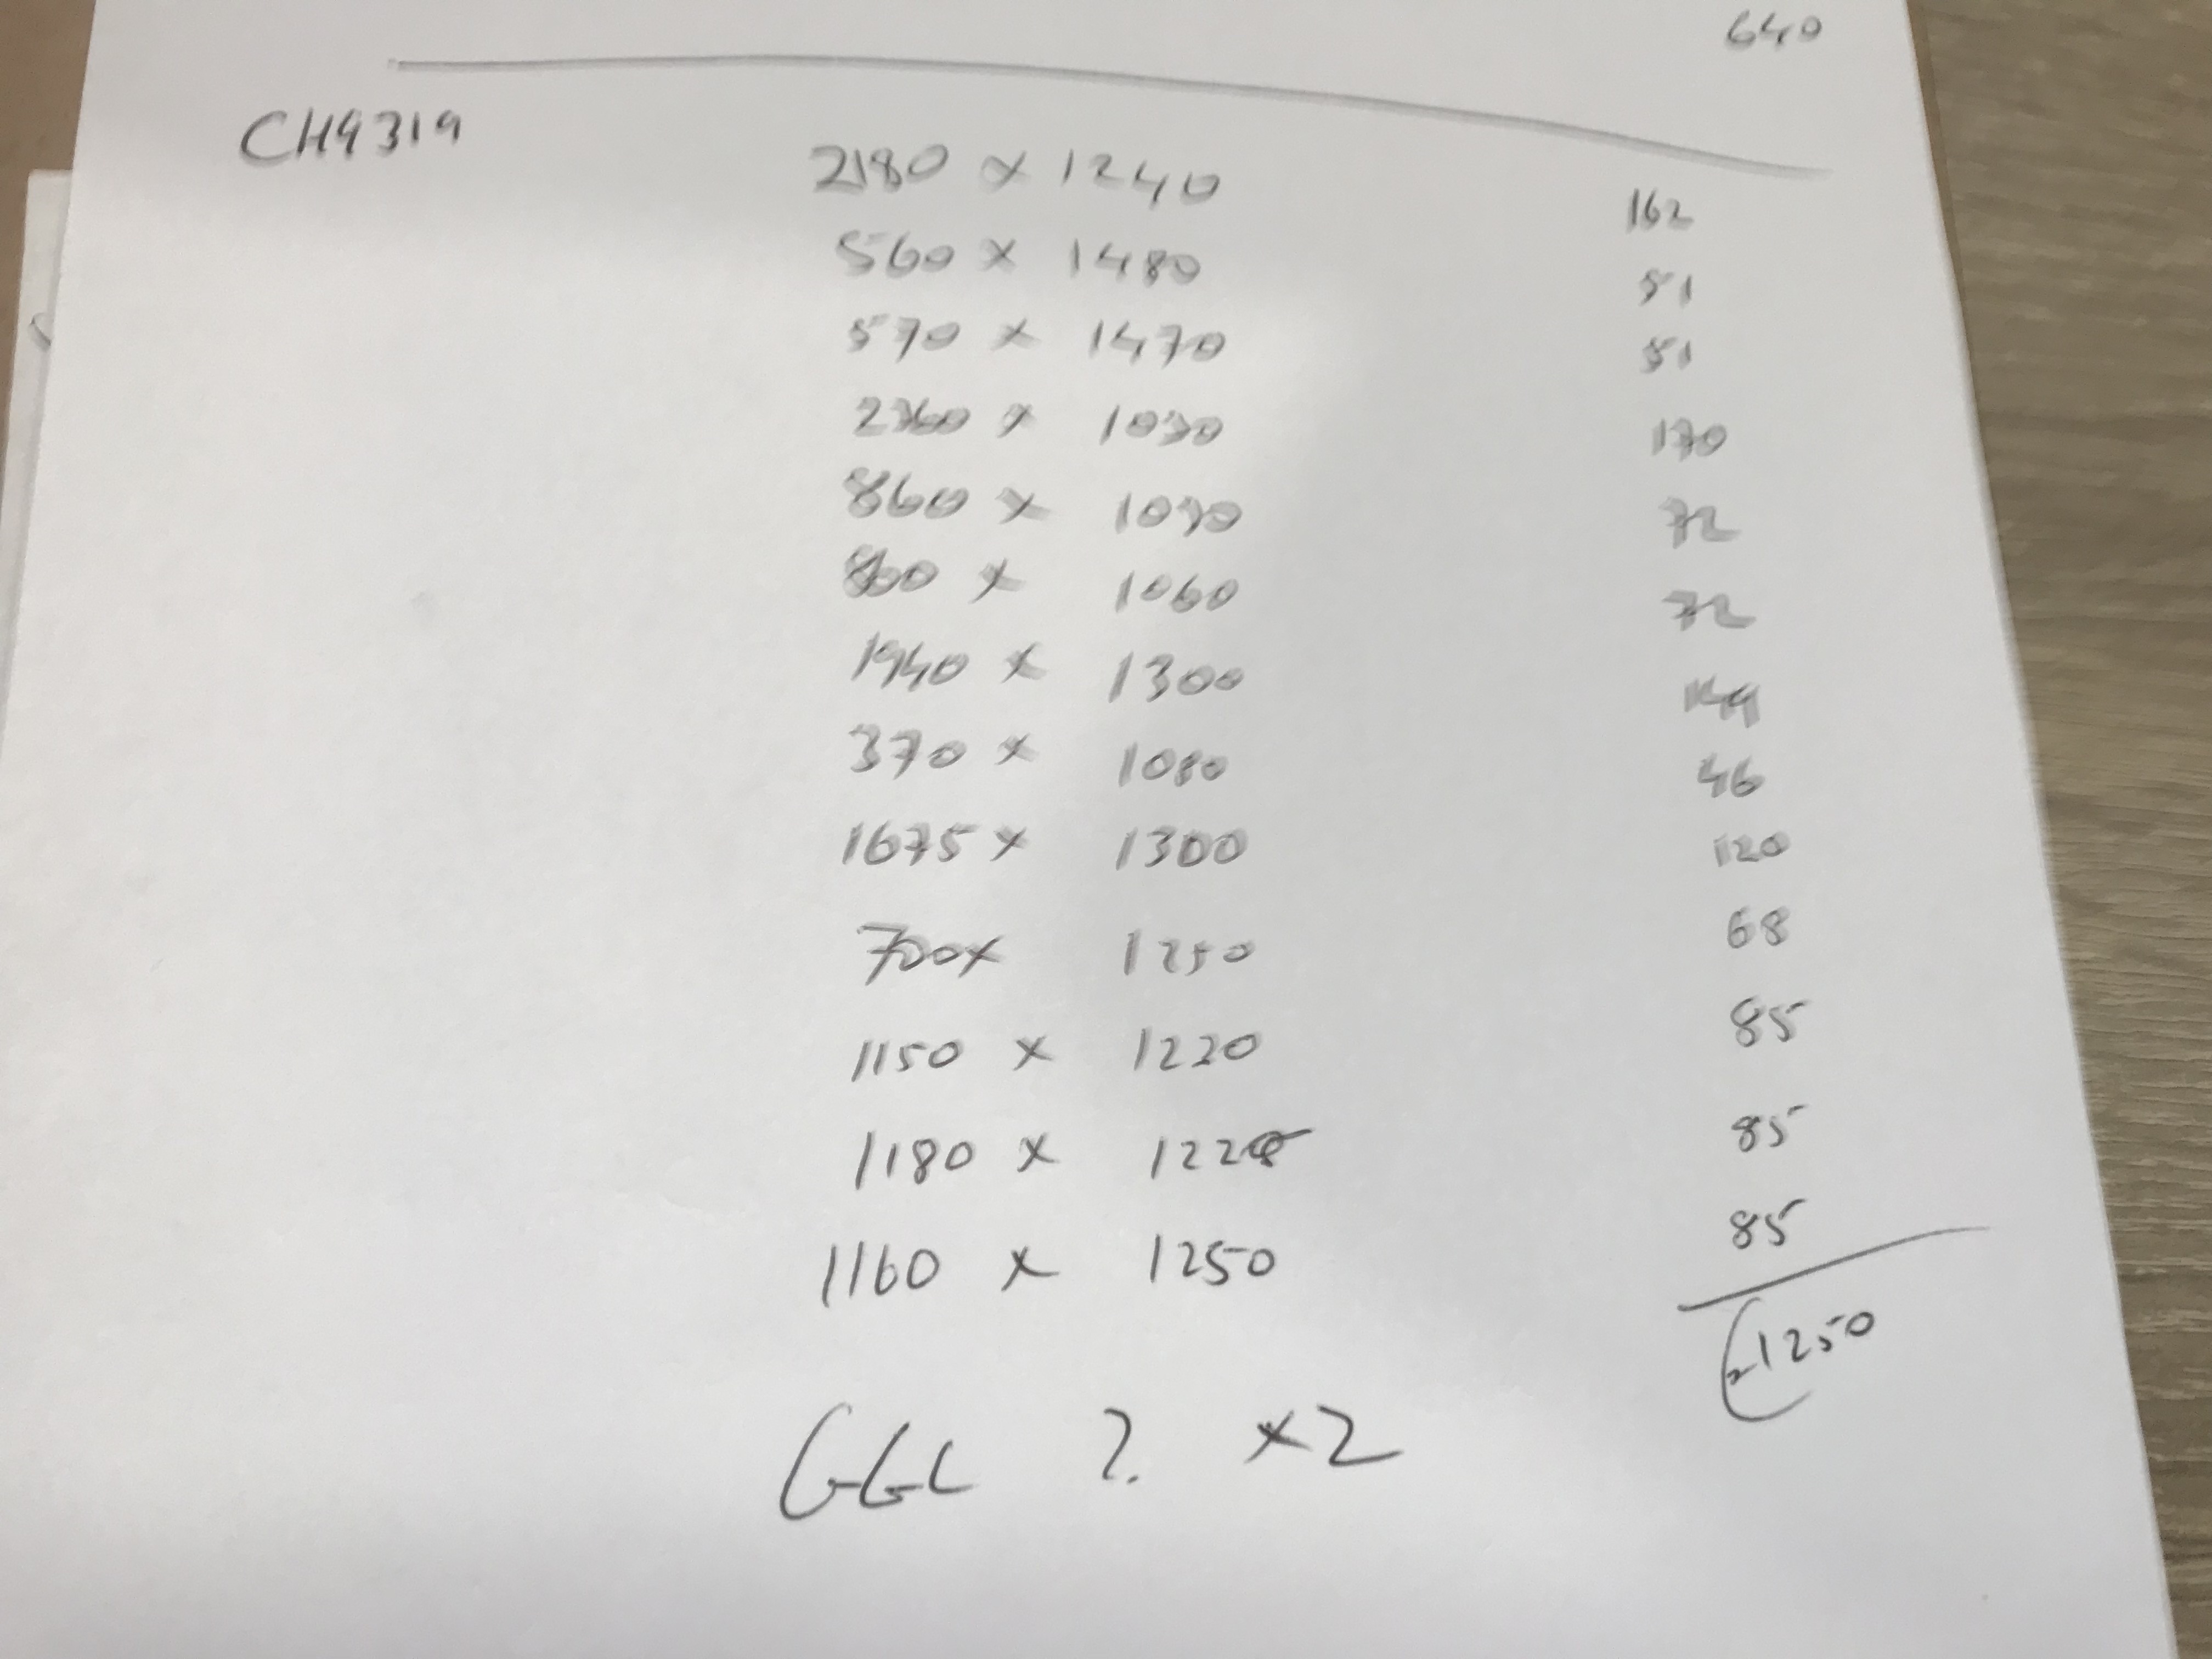 640
CH9319
2180 x 1240 162
560 x 1480 51
570 x 1470 51
2360 x 1030 170
860 x 1030 72
860 x 1060 72
1940 x 1300 149
370 x 1080 46
1675 x 1300 120
700 x 1250 68
1150 x 1220 85
1180 x 1220 85
1160 x 1250 85
1250
GGL ? x2